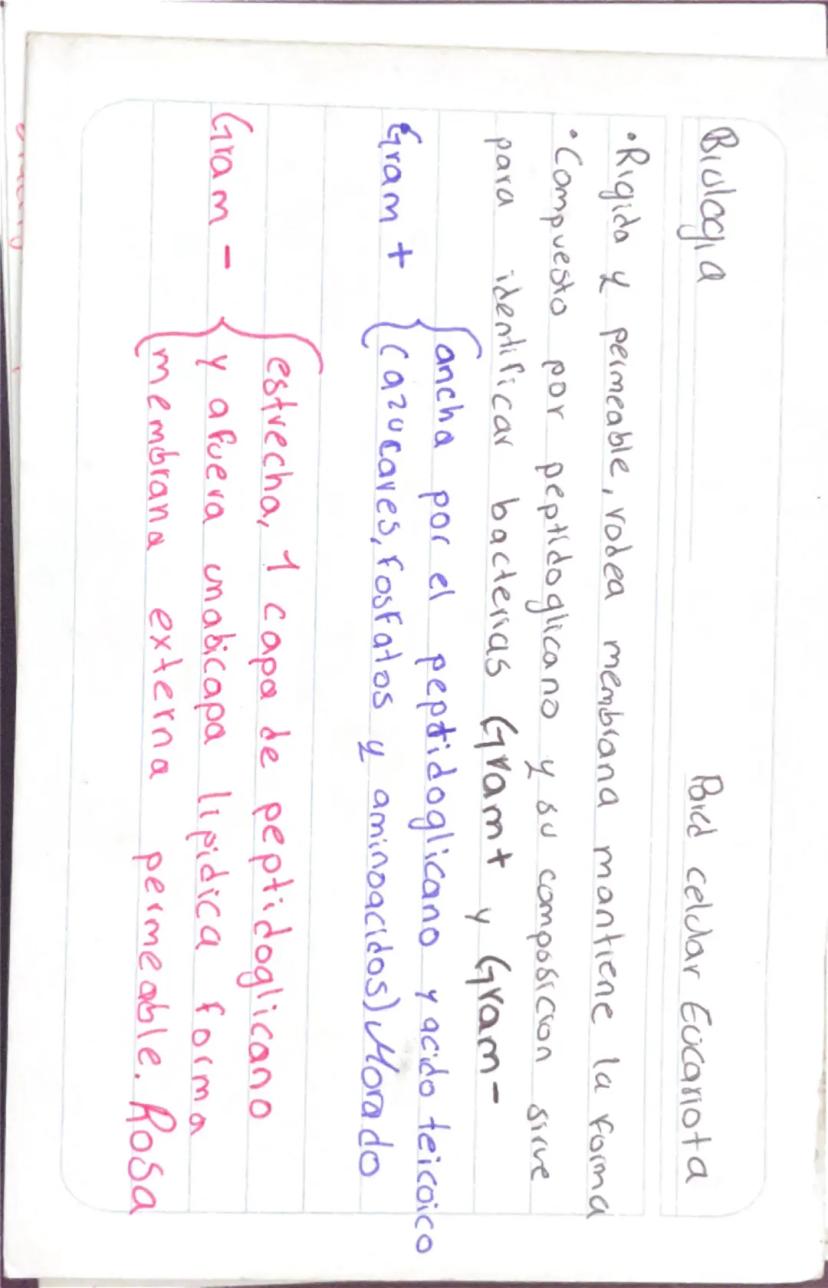 Biología
Pard celular Eucariota
•Rigida y permeable, rodea membrana mantiene la forma
•Compuesto por peptidoglicano y su composicion sirve
para identificar bacterias Gram+ y Gram-
Gram + { ancha por el peptidoglicano y acido teicoico
(azucares, fosfatos y aminoacidos) Morado
Gram - { estrecha, 1 capa de peptidoglicano
y afuera una bicapa lipidica forma
membrana externa permeable. Rosa